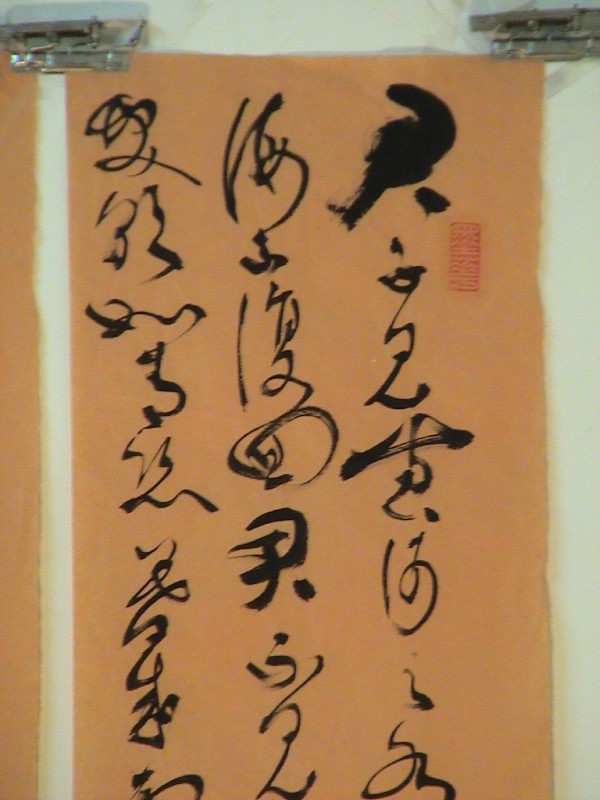 君不見黄河之水
海不復回君不見
髮朝如青絲暮成